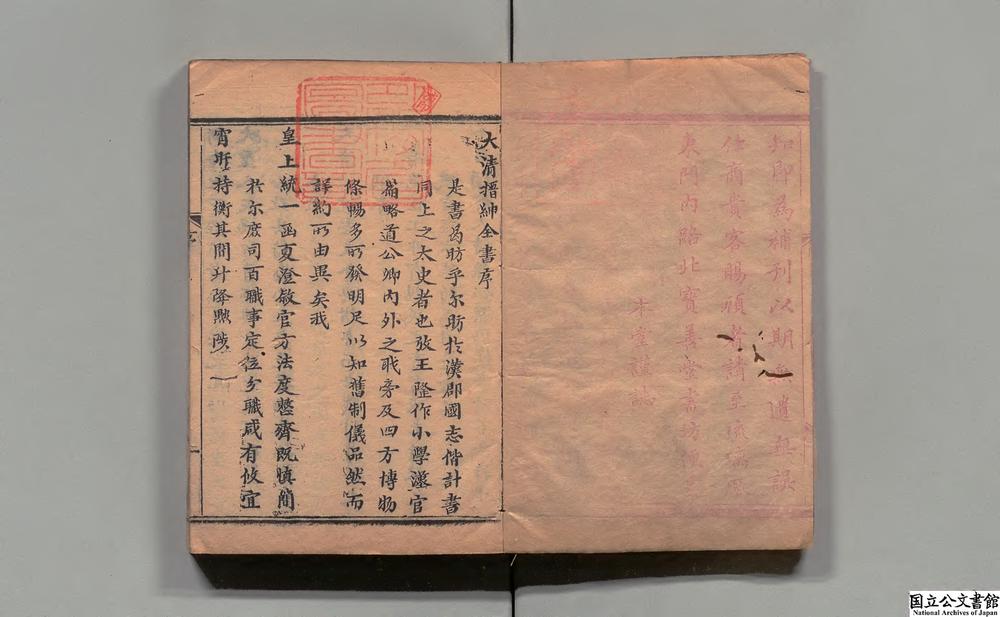 知即為補刊以期無遺無誤
仕商貴客賜顧者請至琉璃廠
東門內路北寶善堂書坊便是
本堂謹誌
大清搢紳全書序
是書曷昉乎尔昉於漢郡國志偕計書
同上之太史者也攷王隆作小學漢官
篇略道公卿內外之職旁及四方博物
條暢多所發明足以知舊制儀品然而
詳約所由異矣我
皇上統一函夏澄敘官方法度整齊既慎簡
於尔庶司百職事定位分職咸有攸宜
宵旰持衡其間升降黜陟
国立公文書館
National Archives of Japan